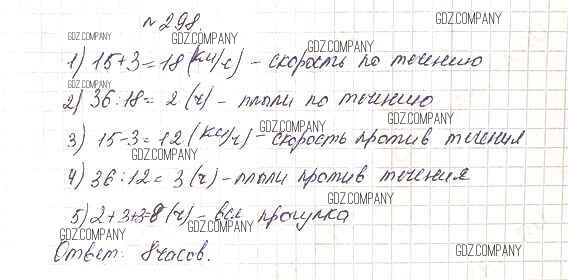 №298
GDZ.COMPANY
GDZ.COMPANY GDZ.COMPANY GDZ.COMPANY
1) 15+3=18 (км/ч) - скорость по течению
GDZ.COMPANY
2) 36:18= 2 (ч) - плыли по течению
GDZ.COMPANY GDZ.COMPANY
3) 15-3=12 (км/ч) - скорость против течения
GDZ.COMPANY
4) 36:12= 3 (ч) - плыли против течения
GDZ.COMPANY
5) 2+3+3=8 (ч) - вся прогулка
GDZ.COMPANY GDZ.COMPANY
Ответ: 8 часов.
GDZ.COMPANY